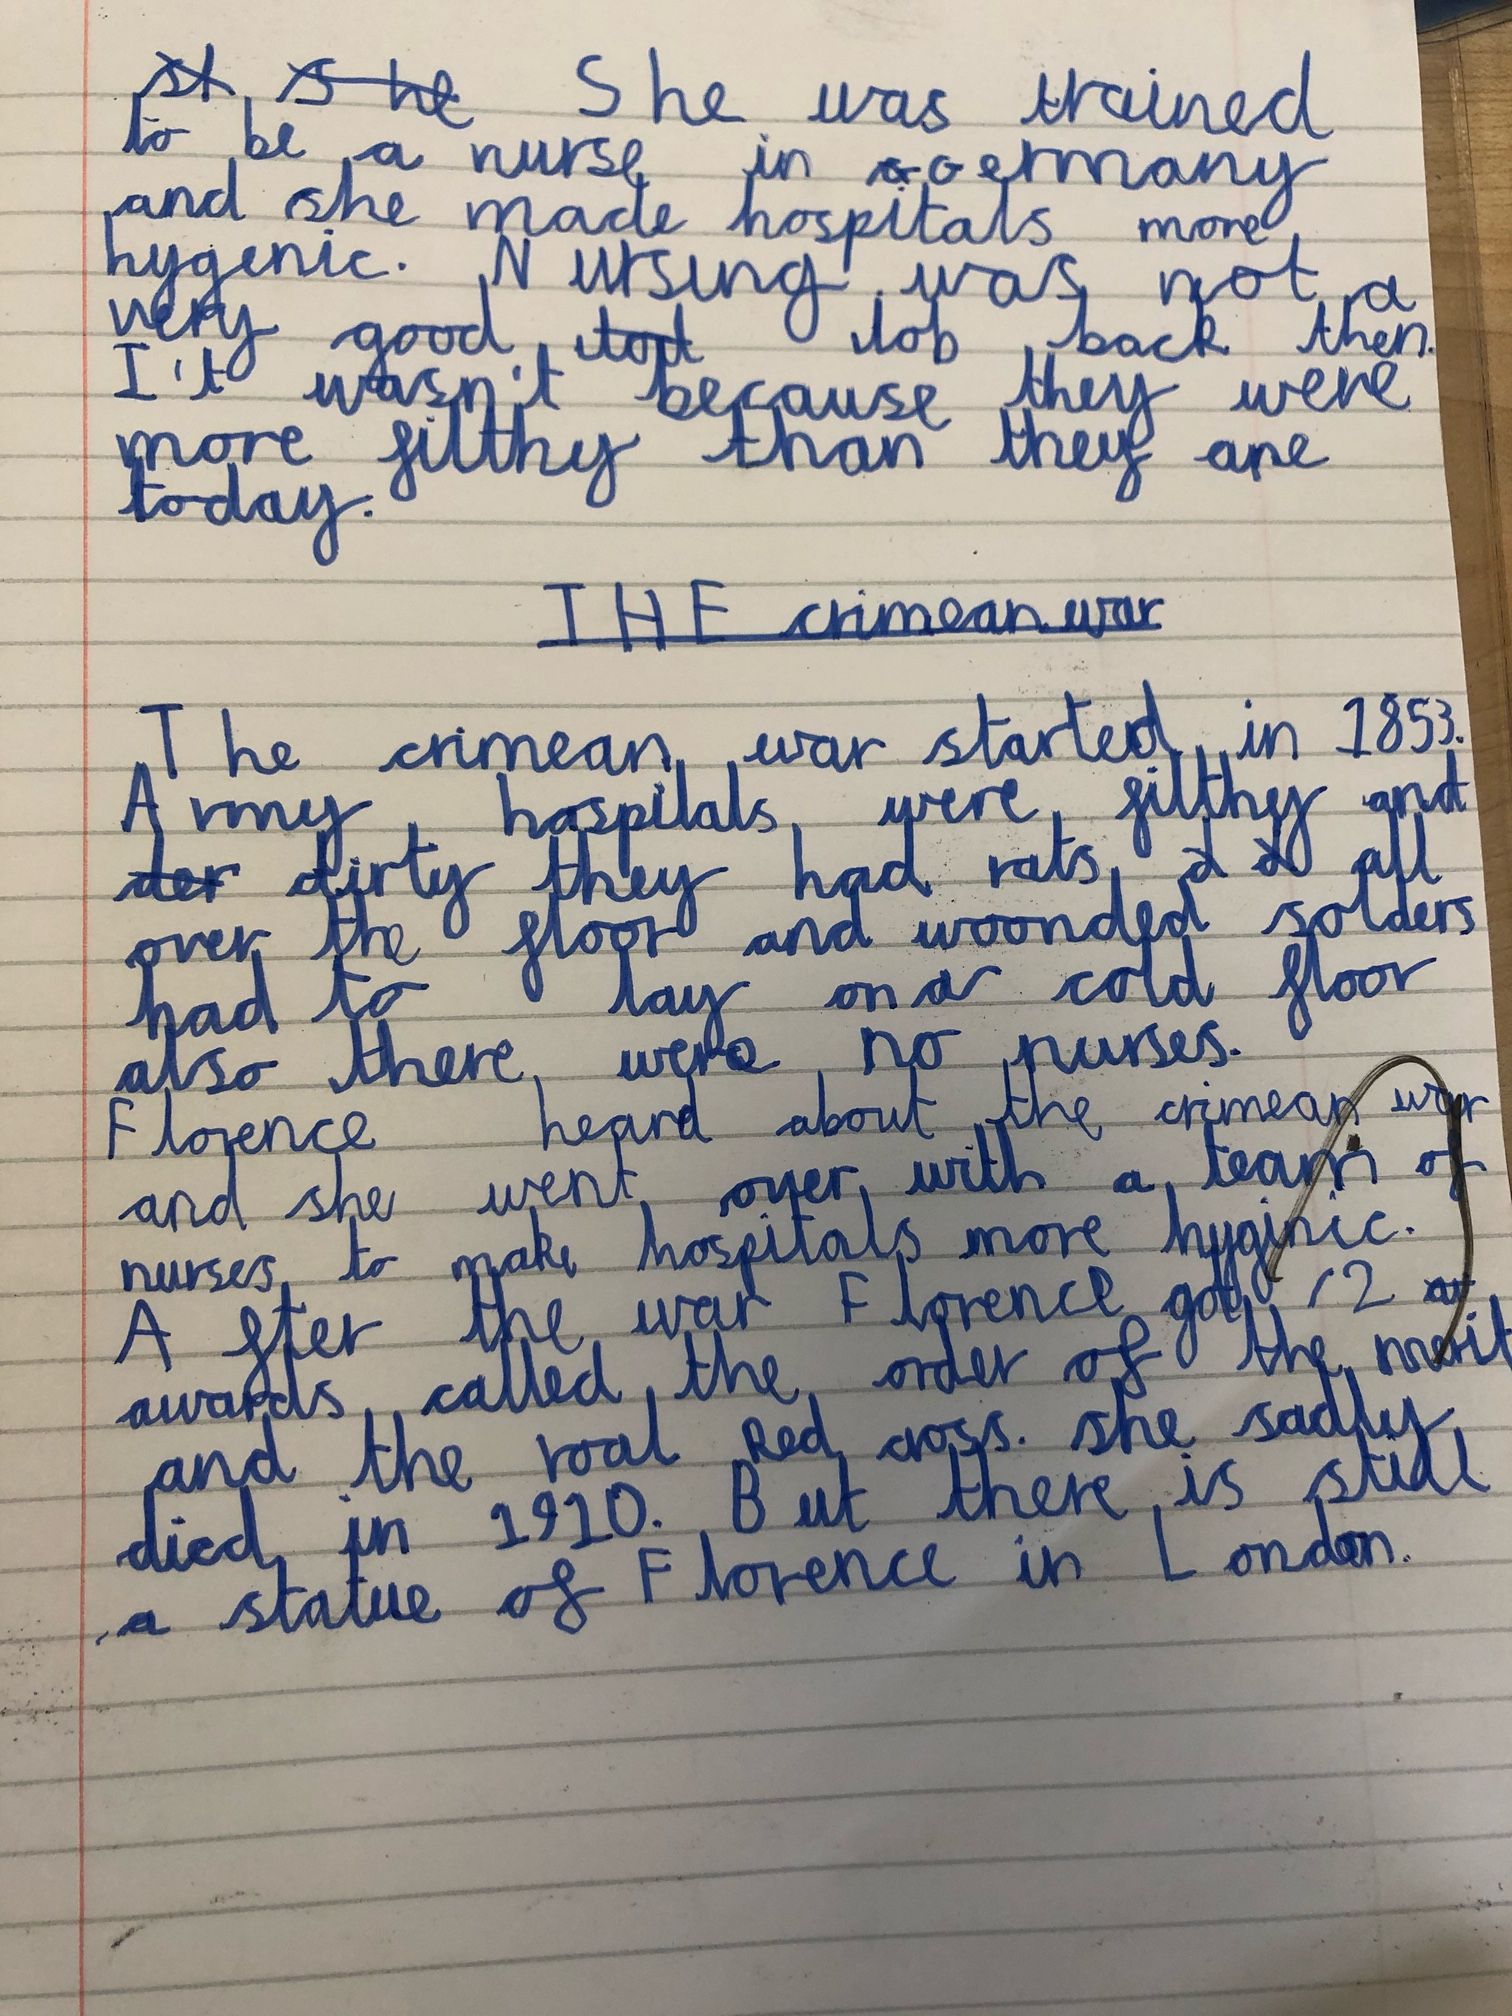 She was trained
to be a nurse in Germany
and she made hospitals more
hygenic. Nursing was not a
very good Job back then.
I't wasn't because they were
more filthy than they are
today.
THE crimean war
The crimean war started in 1853.
Army hospitals were filthy and
dirty they had rats all
over the floor and woonded solders
had to lay on a cold floor
also there were no nurses.
Florence heard about the crimean war
and she went over with a team of
nurses to make hospitals more hyginic.
After the war Florence got 2
awards called the order of the merit
and the roal Red cross. she sadly
died in 1910. But there is still
a statue of Florence in London.